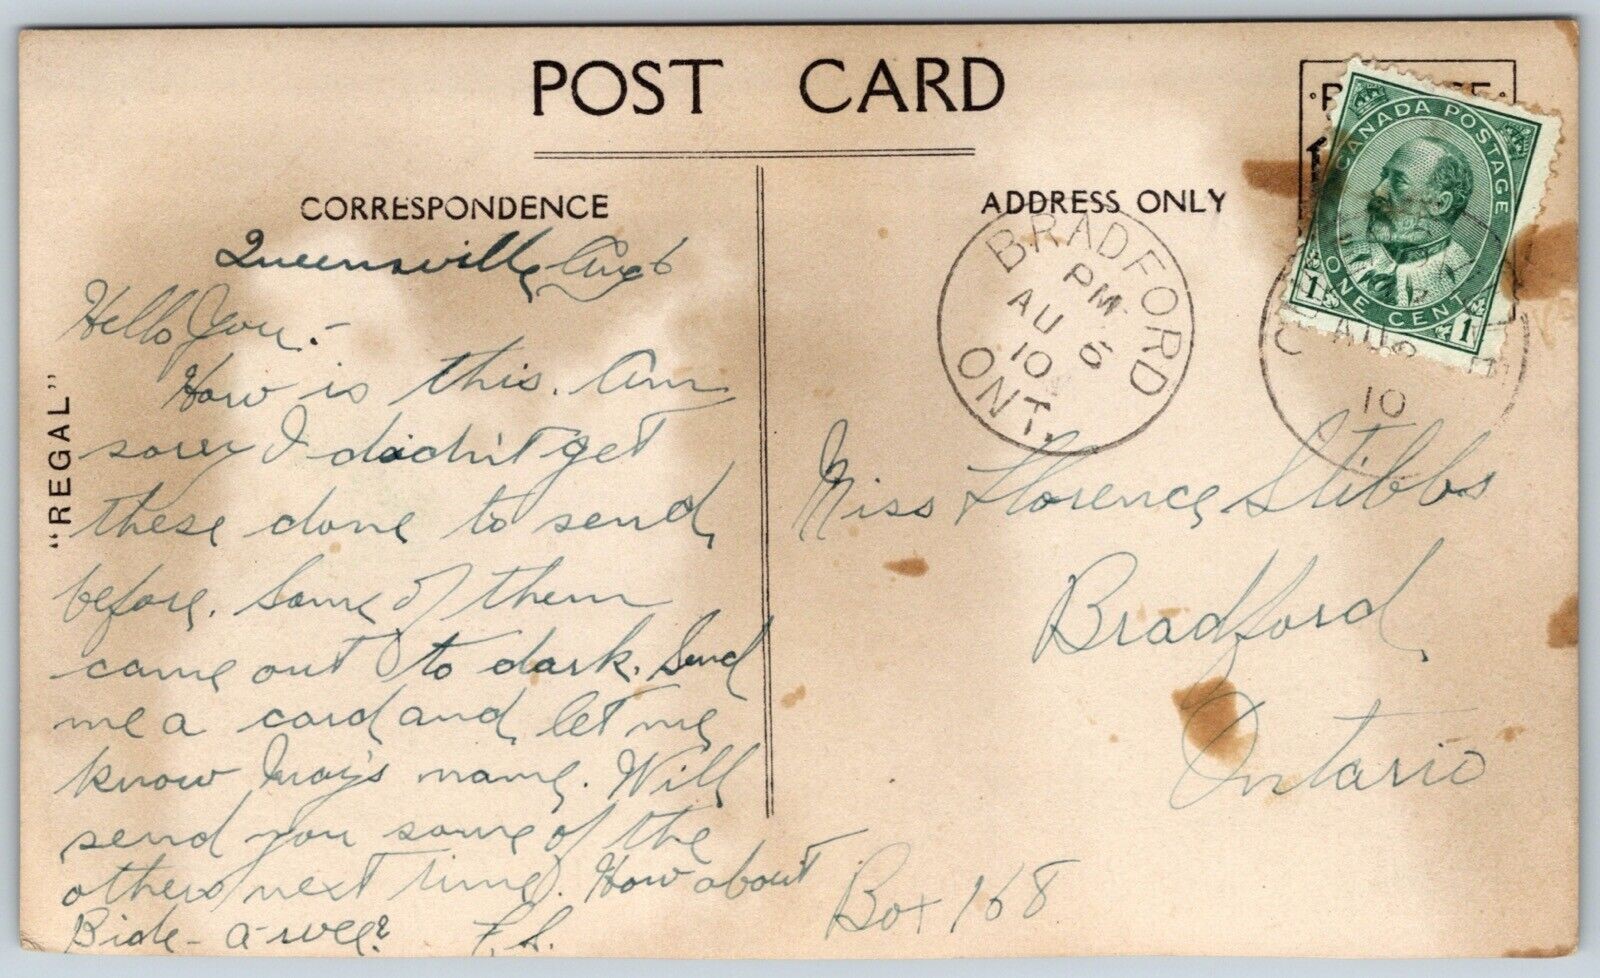 POST CARD
CORRESPONDENCE
ADDRESS ONLY
"REGAL"
CANADA POSTAGE
1 ONE CENT 1
BRADFORD
PM
AU 6
10
ONT.
AU 6
10
Queensville, Aug 6
Hello You:-
How is this. Am
sorry I didn't get
these done to send
before. Some of them
came out to dark. Send
me a card and let me
know name. Will
send you some of the
others next time. How about
Bide-a-wee? F.S.
Miss Florence Stibbs
Bradford,
Ontario
Box 168